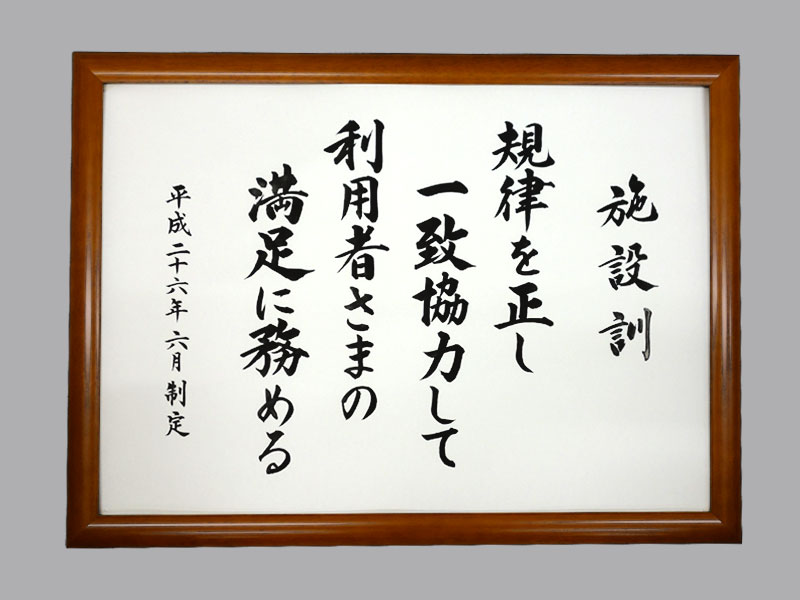 施設訓
規律を正し
一致協力して
利用者さまの
満足に務める
平成二十六年六月制定